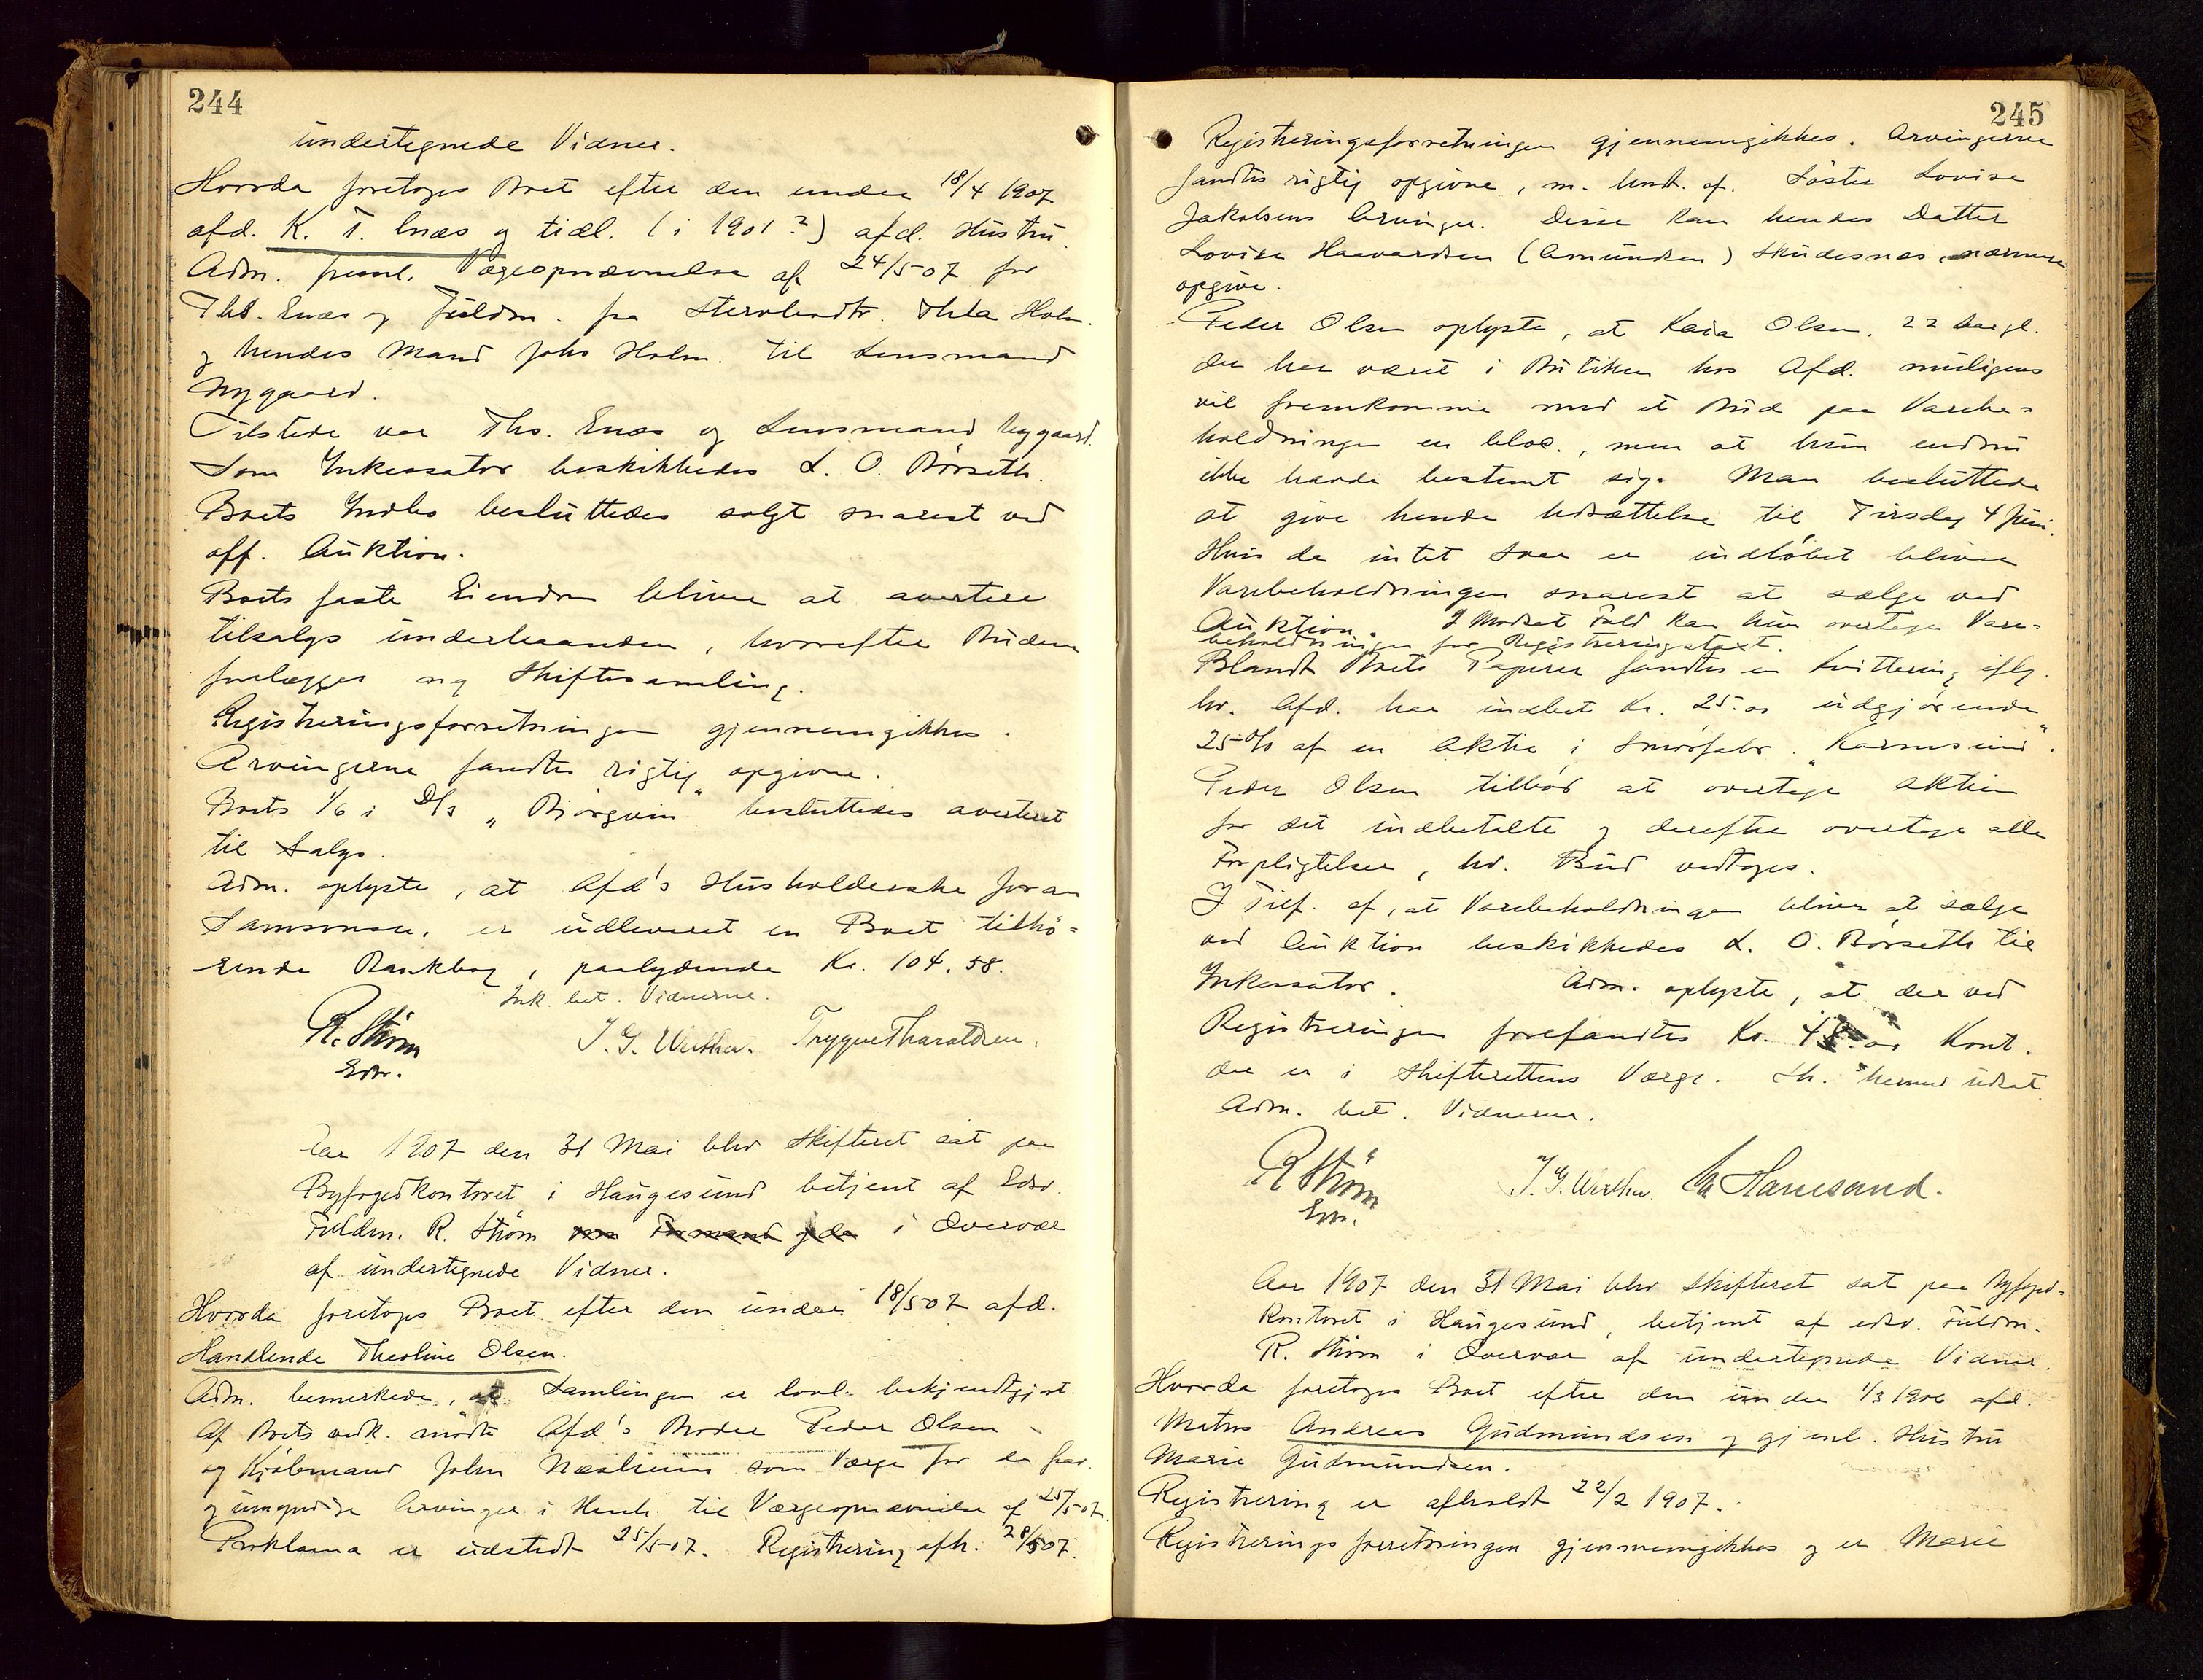 244
undertegnede Vidner.
Hvorda foretoges Boet efter den under 18/4 1907
afd. K. T. Enæs og tidl. (i 1901?) afd. Hustru.
Adm. freml. Værgeopnævnelse af 24/5-07 for
Ths. Enæs og Fuldm. fra Stervbodtr. Thea Holm.
og hendes Mand Johs Holm. til Lensmand
Nygaard.
Tilstede var Ths. Enæs og Lensmand Nygaard.
Som Inkassator beskikkedes L. O. Börseth.
Boets Indbo besluttedes solgt snarest ved
off. Auktion.
Boets faste Eiendom bliver at avertere
tilsalgs underhaanden, hvorefter Budene
forelægges ny Skiftesamling.
Registreringsforretningen gjennemgikkes.
Arvingerne fandtes rigtig opgivne.
Boets 1/6 i D/S "Bjørgvin" besluttedes averteret
til Salgs.
Adm. oplyste, at Afd's Husholderske Joran
Samsonsen, er udleveret en Boet tilhö=
rende Bankbog, paalydende Kr. 104.58.
Ink. bet. Vidnerne.
R. Strøm
Edsv.
J. G. Werther. Trygve Tharaldsen.
Aar 1907 den 31 Mai blev Skifteret sat paa
Byfogedkontoret i Haugesund betjent af Edsv.
Fuldm. R. Ström i Overvær
af undertegnede Vidner.
Hvorda foretoges Boet efter den under 18/5-07 afd.
Handlende Theoline Olsen.
Adm. bemerkede, at Samlingen er lovl. bekjendtgjort.
Af Boets vedk. mødte Afd's Broder Peder Olsen
og Kjøbmand John Næsheim som Værge for de frav.
og umyndige Arvinger i Henh. til Værgeopnævnelse af 25/5-07.
Proklama er udstedt 25/5-07. Registrering afh. 28/5 07.
245
Registreringsforretningen gjennemgikkes. Arvingerne
fandtes rigtig opgivne, m. Undt. af Søster Lovise
Jakobsens Arvinger. Disse kan hendes Datter
Lovise Haavardsen (Amundsen) Skudesnæs, nærmere
opgive.
Peder Olsen oplyste, at Kaia Olsen, 22 Aar gl.
der har været i Butiken hos Afd. muligens
vil fremkomme med et Bud paa Varebe=
holdningen en bloc., men at hun endnu
ikke havde bestemt sig. Man besluttede
at give hende Udsættelse til Tirsdag 4 Juni.
Hvis da intet Svar er indløbet bliver
Varebeholdningen snarest at sælge ved
Auktion. I Modsat Fald kan hun overtage Vare-
beholdningen for Registreringstaxt.
Blandt Boets Papirer fandtes en Kvittering iflg.
hv. Afd. har indbet Kr. 25.00 udgjørende
25% af en Aktie i Smørfabr. "Karmsund".
Peder Olsen tilbød at overtage Aktien
for det indbetalte og derefter overtage alle
Forpligtelser, hv. Bud vedtoges.
I Tilf. af, at Varebeholdningen bliver at sælge
ved Auktion beskikkedes L. O. Börseth til
Inkassator. Adm. oplyste, at der ved
Registreringen forefandtes Kr. Kont.
der er i Skifterettens Værge. Sk. hermed udsat
Adm. bet. Vidnerne.
R Strøm
Edsv.
J. G. Werther. Hanesand.
Aar 1907 den 31 Mai blev Skifteret sat paa Byfoged=
kontoret i Haugesund, betjent af edsv. Fuldm.
R. Strøm i Overvær af undertegnede Vidner.
Hvorda foretoges Boet efter den under 1/3 1906 afd.
Matros Andreas Gudmundsen og gjenl. Hustru
Marie Gudmundsen.
Registrering er afholdt 22/2 1907.
Registreringsforretningen gjennemgikkes og er Marie